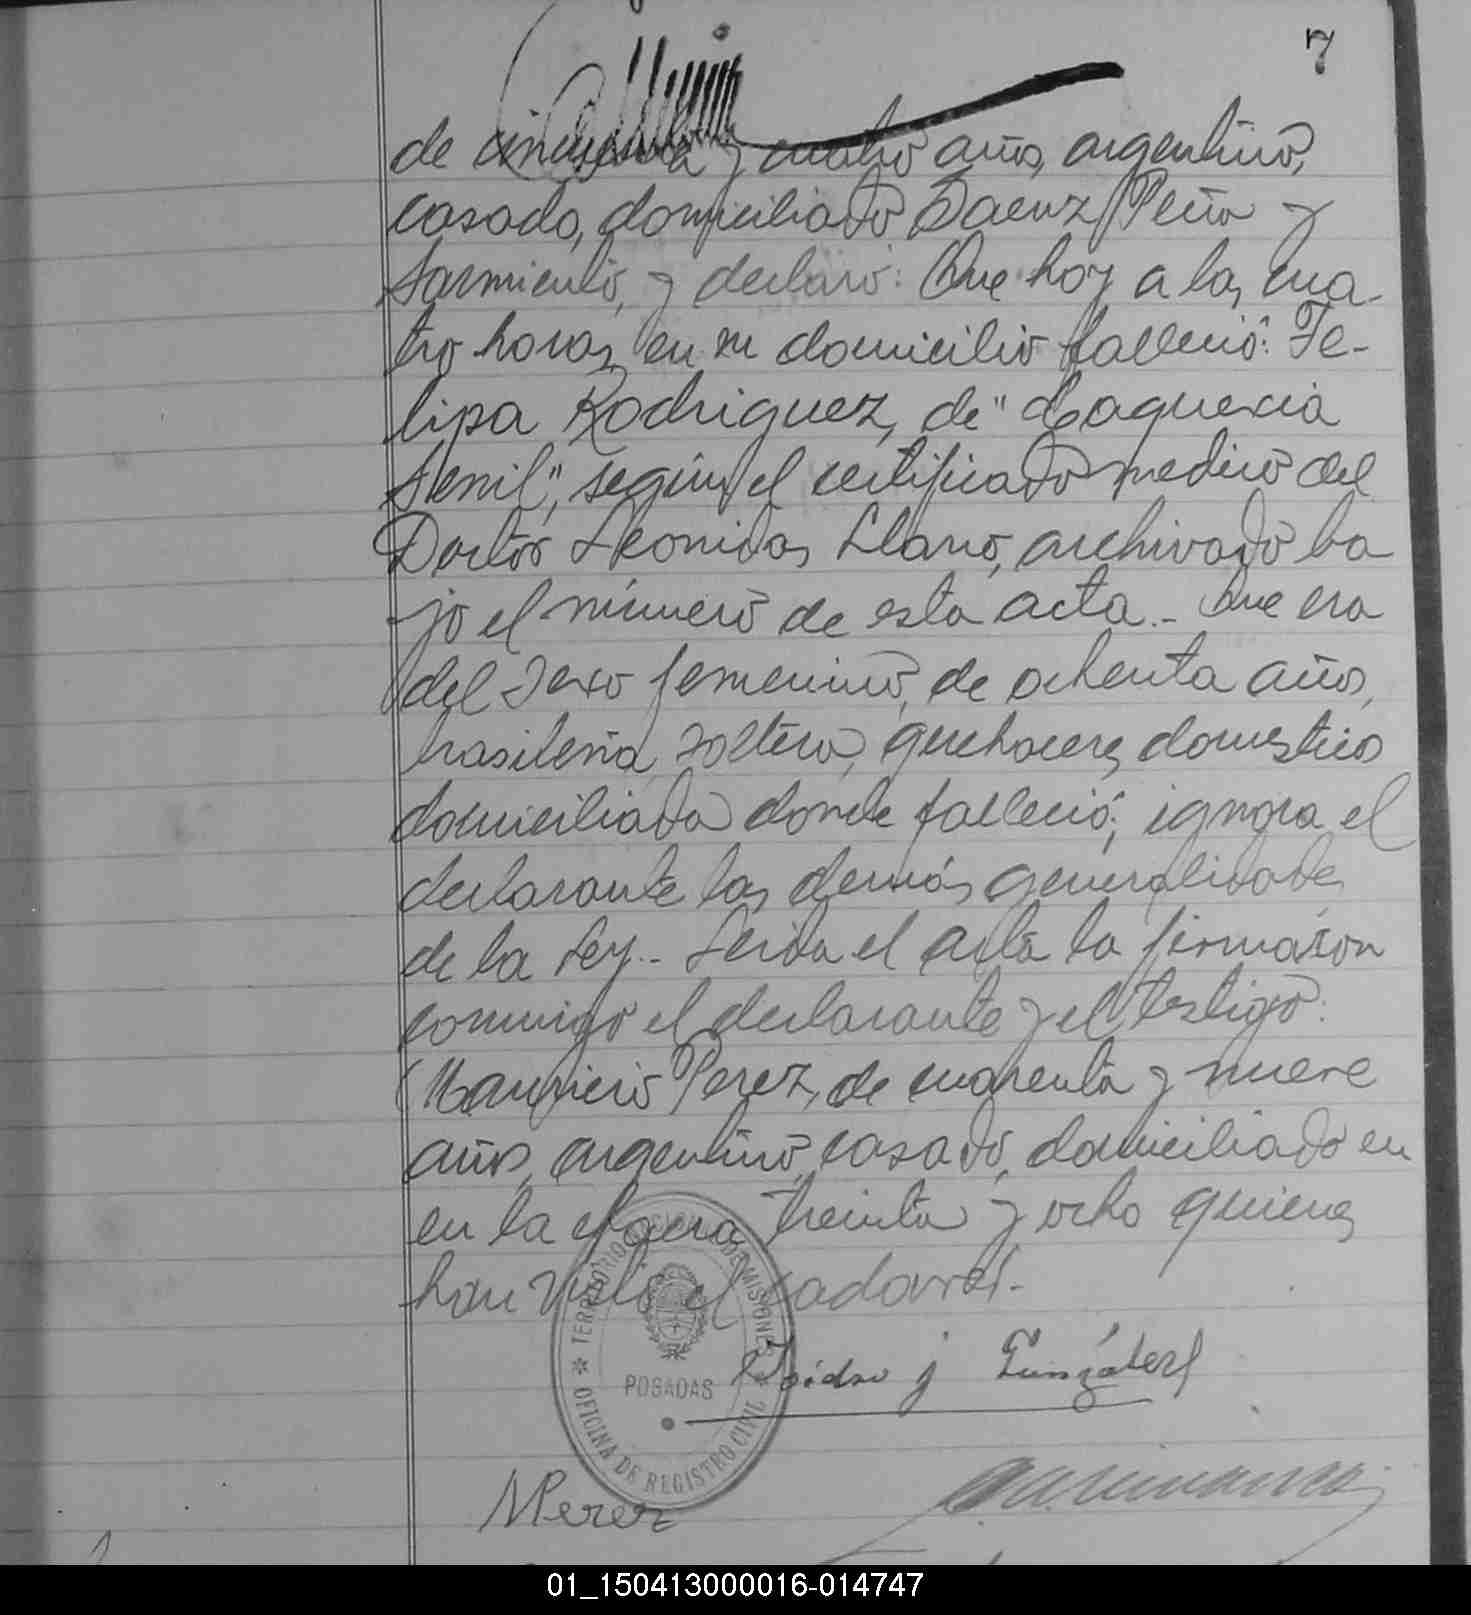 7
de cincuenta y cuatro años, argentino,
casado, domiciliado Saenz Peña y
Sarmiento, y declaró: Que hoy a las cua-
tro horas, en su domicilio falleció: Fe-
lipa Rodriguez, de "Caquexia
senil", según el certificado medico del
Doctor Leonidas Llano, archivado ba
jo el número de esta acta.- Que era
del sexo femenino, de ochenta años,
brasileña, soltera, quehaceres domestico
domiciliada donde falleció; ignora el
declarante las demás generalidades
de la Ley.- Leida el acta la firmaron
conmigo el declarante y el testigo:
Mauricio Perez, de cuarenta y nueve
años, argentino, casado, domiciliado en
en la chacra treinta y ocho quienes
han visto el cadaver.-
TERRITORIO NACIONAL DE MISIONES
POSADAS
OFICINA DE REGISTRO CIVIL
Isidro J González
MPerez
01_150413000016-014747